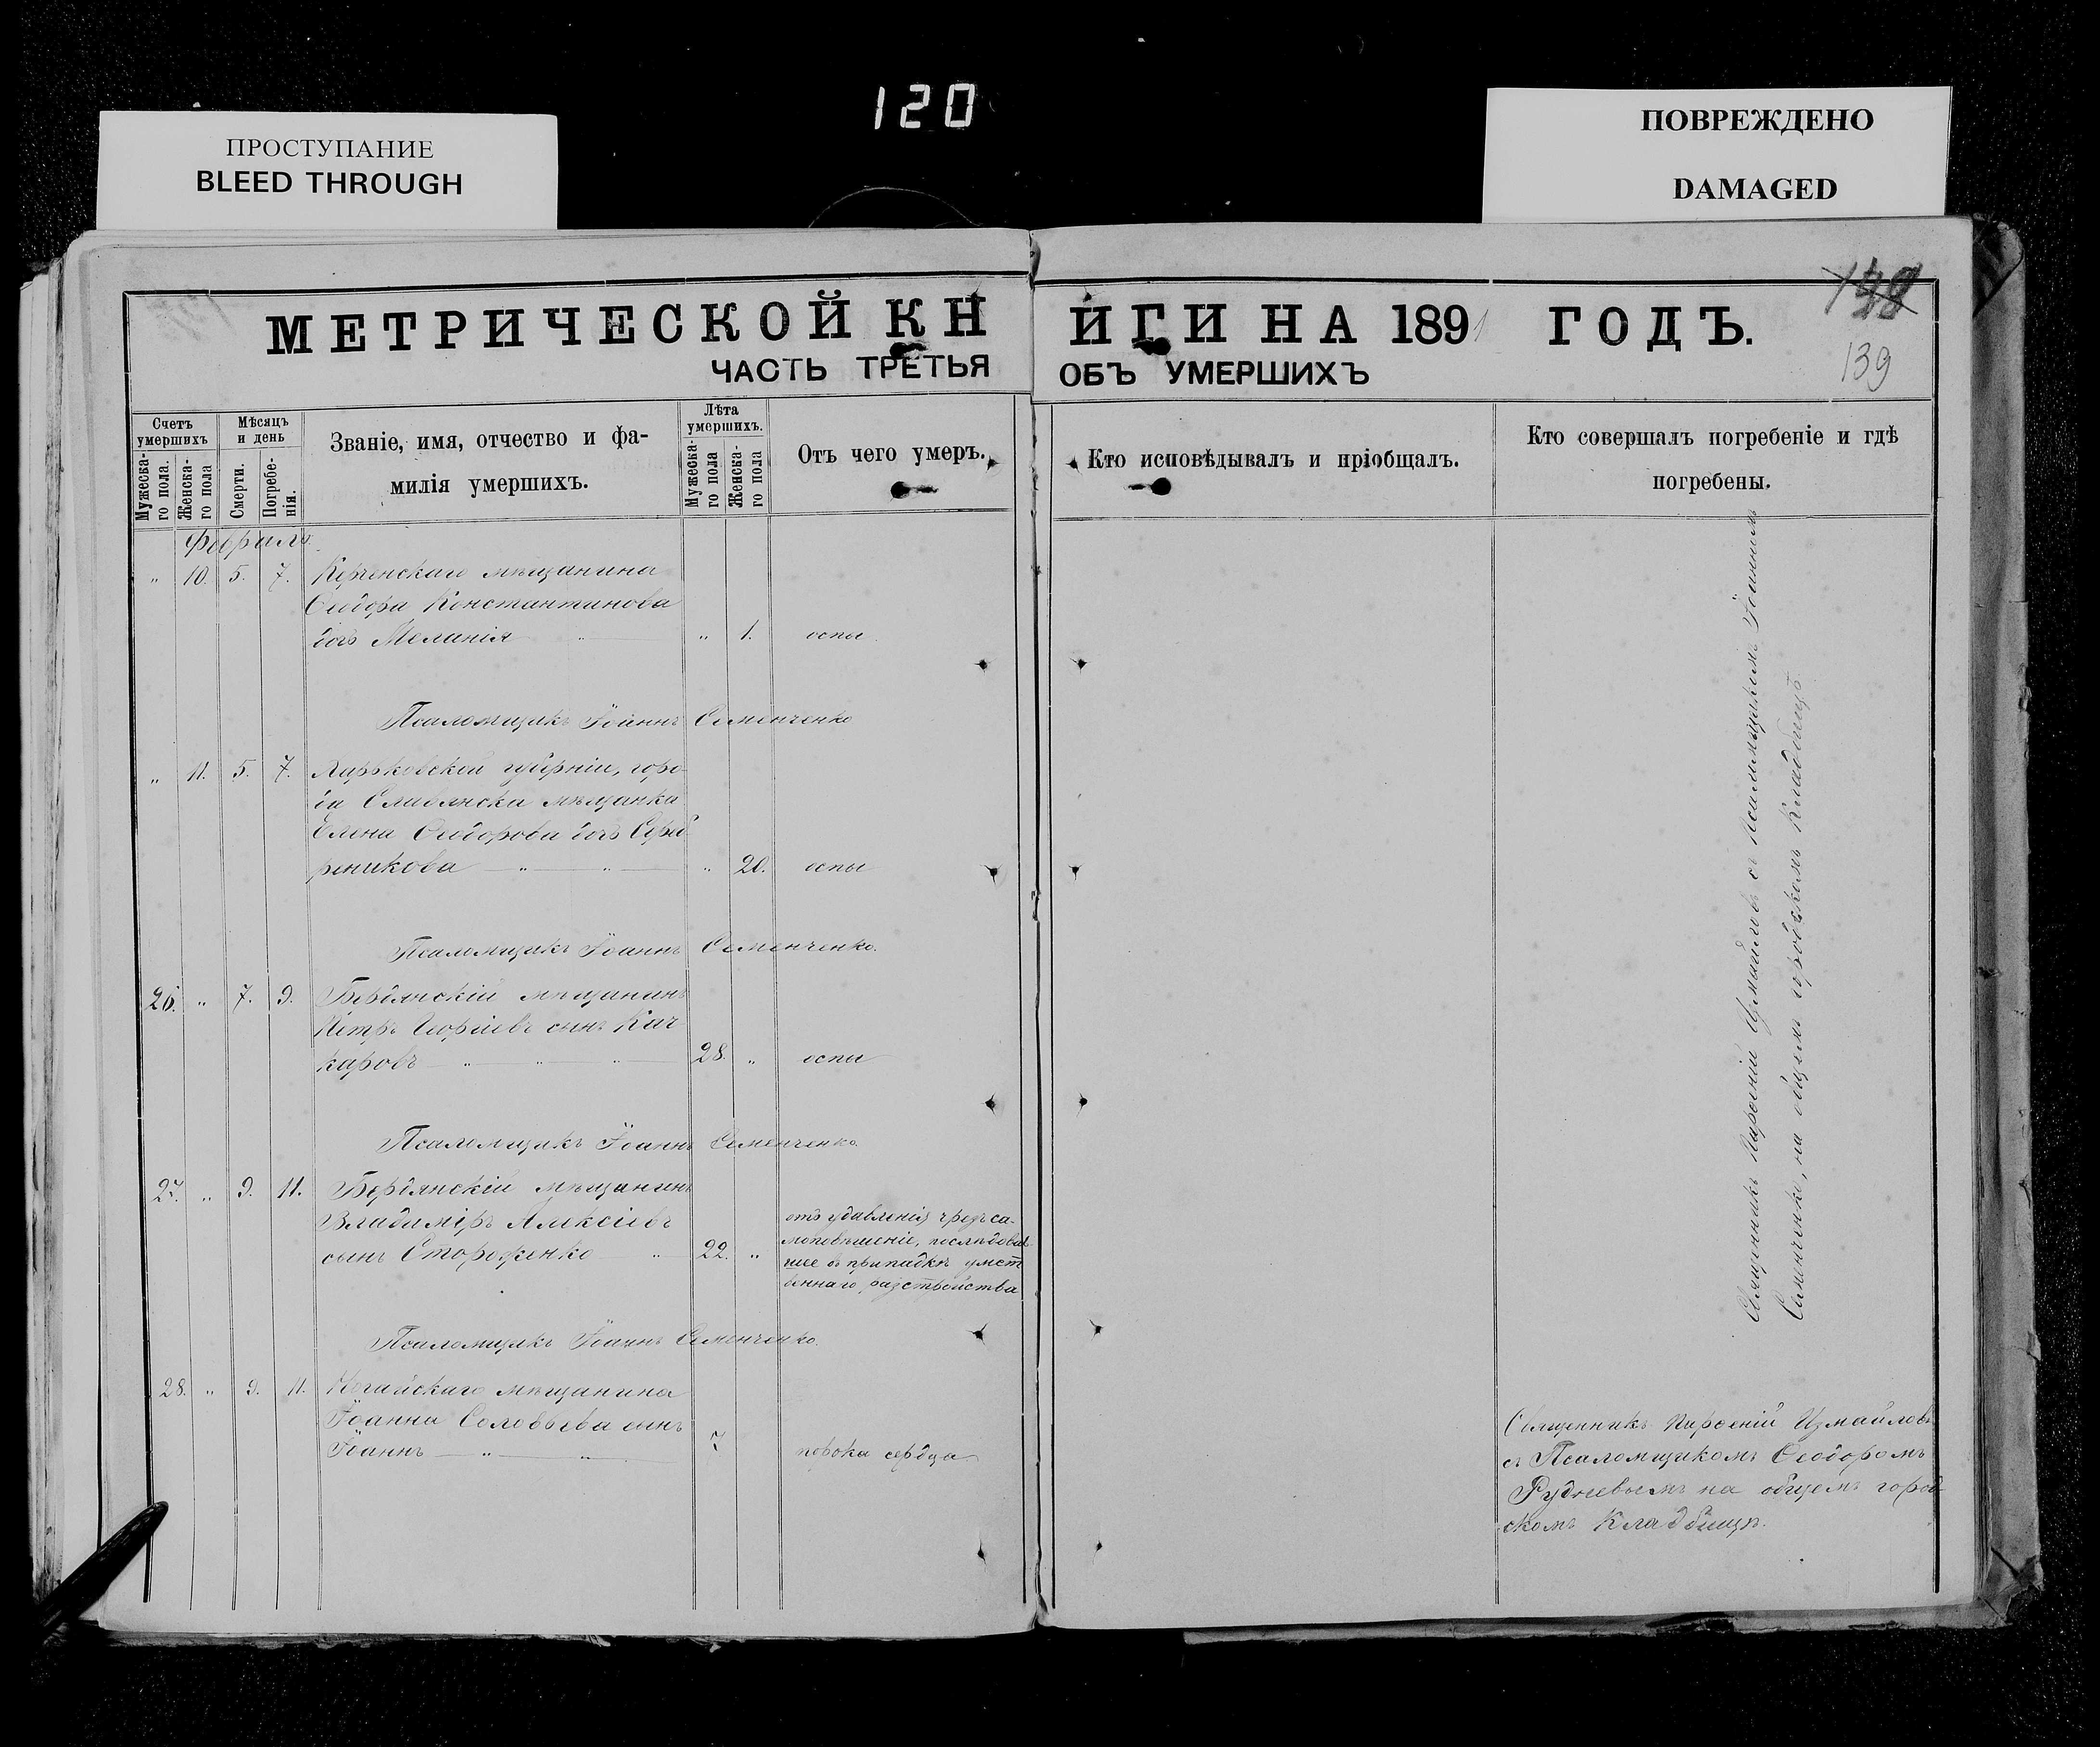 120
ПРОСТУПАНИЕ
BLEED THROUGH
ПОВРЕЖДЕНО
DAMAGED
139
МЕТРИЧЕСКОЙ КНИГИ НА 1891 ГОДЪ.
ЧАСТЬ ТРЕТЬЯ ОБЪ УМЕРШИХЪ
Счетъ умершихъ
Мужеска-го пола.
Женска-го пола
Мѣсяцъ и день
Смерти.
Погребе-нія.
Званіе, имя, отчество и фа-
милія умершихъ.
Лѣта умершихъ.
Мужеска-го пола
Женска-го пола
Отъ чего умеръ.
Кто исповѣдывалъ и пріобщалъ.
Кто совершалъ погребеніе и гдѣ
погребены.
Февраль
" 10. 5. 7. Керченскаго мѣщанина
Ѳеодора Константинова
дочь Меланія " " 1. оспы
Псаломщикъ Іоаннъ Семенченко
" 11. 5. 7. Харьковской губерніи, горо-
да Славянска мѣщанка
Елена Ѳеодорова дочь Сереб
реникова " " " 20. оспы
Псаломщикъ Іоаннъ Семенченко.
26. " 7. 9. Бердянскій мѣщанинъ
Петръ Георгіевъ сынъ Кач
каровъ " " " 28. " оспы
Псаломщикъ Іоаннъ Семенченко.
27. " 9. 11. Бердянскій мѣщанинъ
Владиміръ Алексіевъ
сынъ Стороженко " 22. "
отъ удавленія чрезъ са-
моповѣшеніе, послѣдовав-
шее въ припадкѣ умст
веннаго разстройства
Псаломщикъ Іоаннъ Семенченко.
28. " 9. 11. Ногайскаго мѣщанина
Іоанна Соловьева сынъ
Іоаннъ " " 7 порока сердца
Священникъ Парѳеній Измайловъ съ Псаломщикомъ Іоанномъ
Семенченко, на общемъ городскомъ кладбищѣ
Священникъ Парѳеній Измайловъ
съ Псаломщикомъ Ѳеодоромъ
Рудневымъ на общемъ город-
скомъ кладбищѣ.